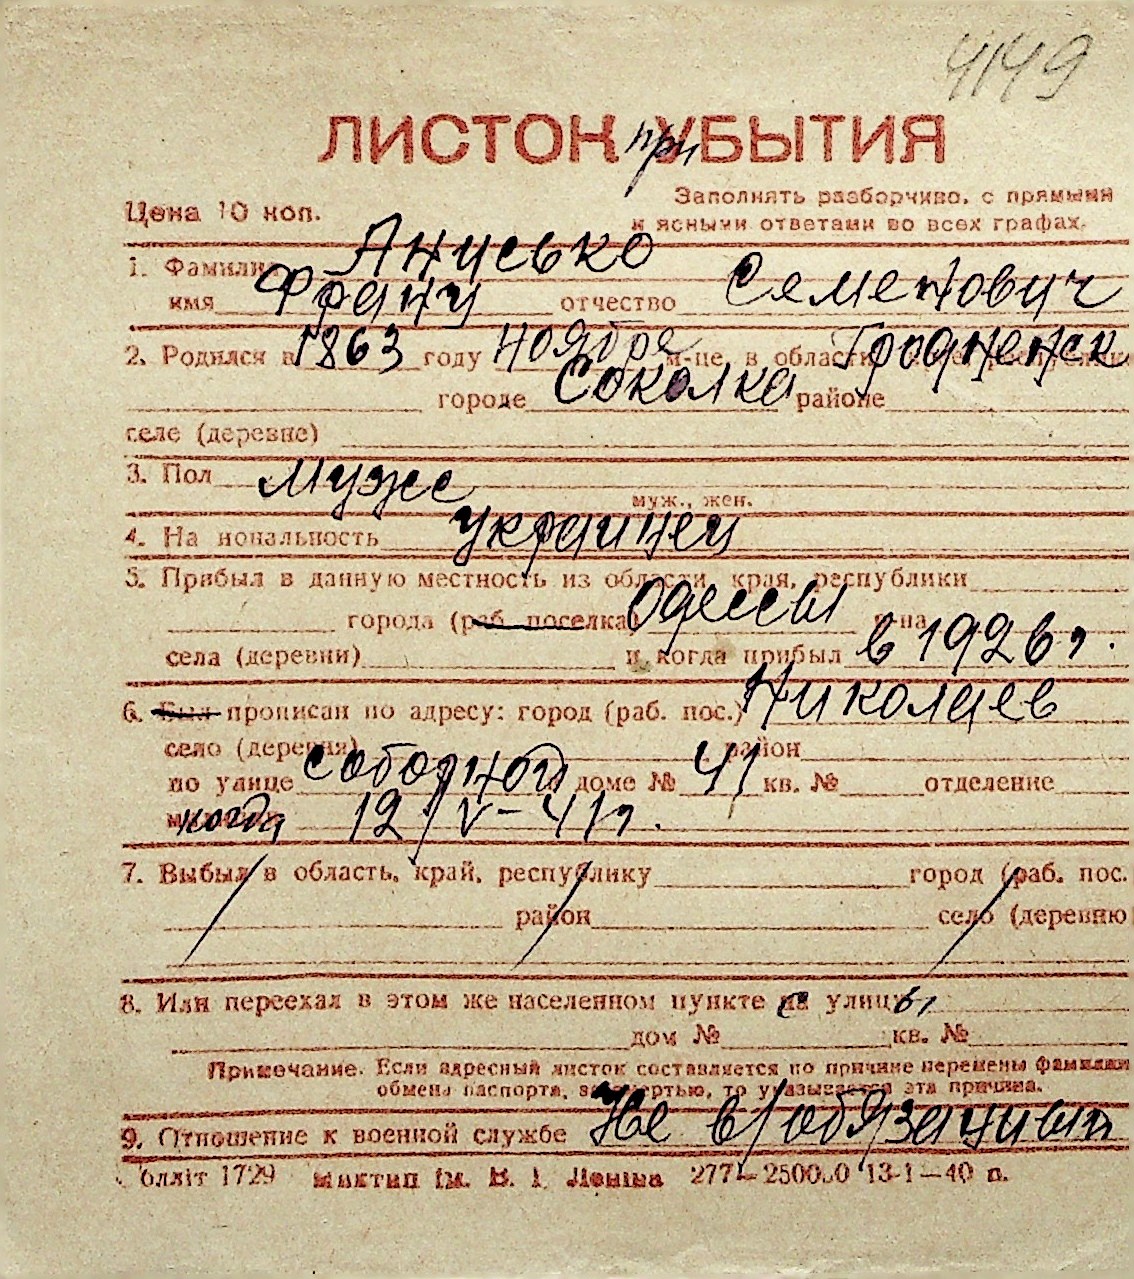 4149
ЛИСТОК при УБЫТИЯ
Цена 10 коп.
Заполнять разборчиво, с прямыми
и ясными ответами во всех графах.
1. Фамилия Анусько
имя Франц отчество Семенович
2. Родился в 1863 году ноября м-це, в области Гродненск
городе Соколка районе
селе (деревне)
3. Пол Муже
муж., жен.
4. Национальность украинец
5. Прибыл в данную местность из области, края, республики
города (раб. поселка) Одессы
села (деревни) и когда прибыл в 1926 г.
6. Был прописан по адресу: город (раб. пос.) Николаев
село (деревня) район
по улице соборной доме № 41 кв. № отделение
когда 12/V-41 г.
7. Выбыл в область, край, республику город (раб. пос.
район село (деревню
8. Или переехал в этом же населенном пункте с улицы
дом № кв. №
Примечание. Если адресный листок составляется по причине перемены фамилии
обмена паспорта, за смертью, то указывается эта причина.
9. Отношение к военной службе Не в/обязанный
болліт 1729 Миктип ім. В. І. Леніна 277—250000 13-1—40 п.